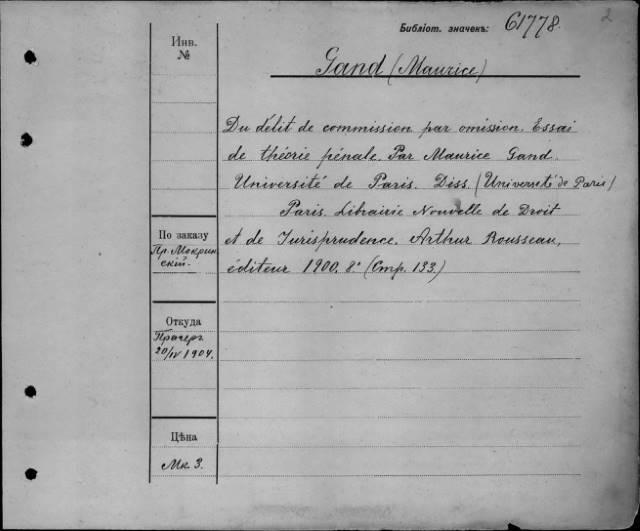 2
Библіот. значекъ: 61778.
Инв.
№
Gand (Maurice)
Du délit de commission par omission. Essai
de théorie pénale. Par Maurice Gand.
Université de Paris. Diss. (Université de Paris)
Paris. Librairie Nouvelle de Droit
et de Jurisprudence. Arthur Rousseau,
éditeur 1900. 8° (Стр. 133.)
По заказу
Пр. Мокрин
скій.
Откуда
Прагеръ
20/IV 1904.
Цѣна
Мк. 3.